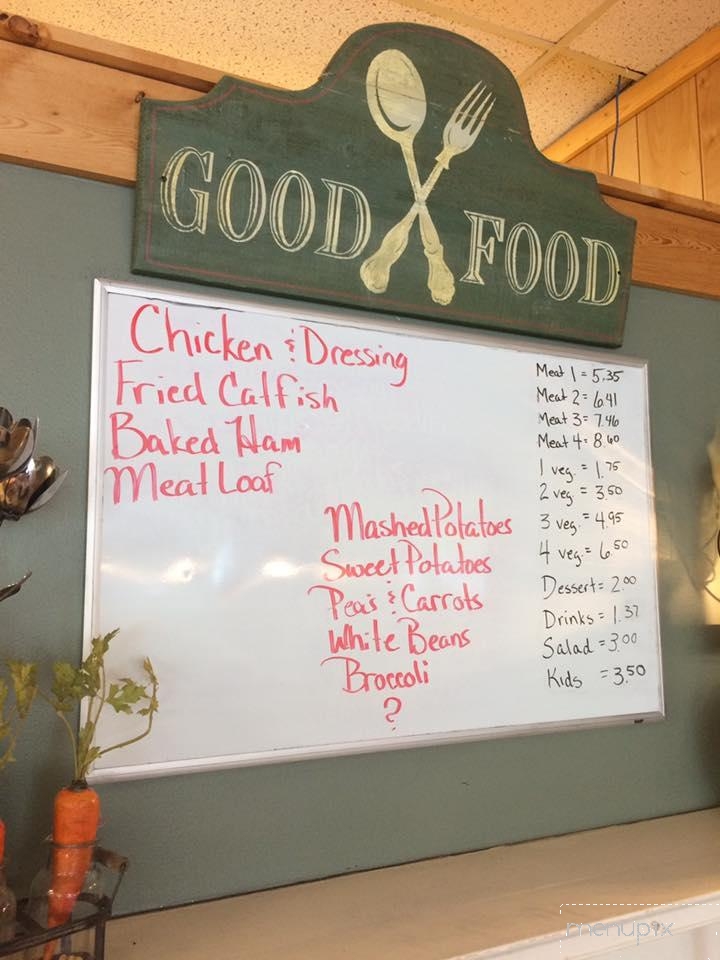 GOOD FOOD
Chicken & Dressing
Fried Catfish
Baked Ham
Meat Loaf
Mashed Potatoes
Sweet Potatoes
Peas & Carrots
White Beans
Broccoli
?
Meat 1 = 5.35
Meat 2 = 6.41
Meat 3 = 7.46
Meat 4 = 8.60
1 veg. = 1.75
2 veg. = 3.50
3 veg. = 4.95
4 veg. = 6.50
Dessert = 2.00
Drinks = 1.37
Salad = 3.00
Kids = 3.50
menupix